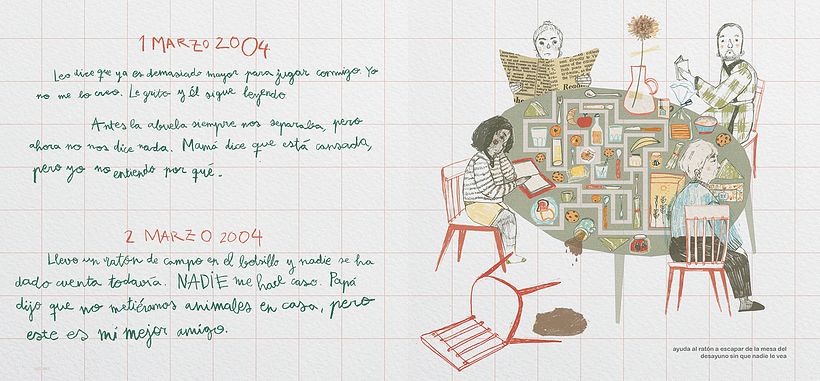 1 MARZO 2004
Leo dice que ya es demasiado mayor para jugar conmigo. Yo
no me lo creo. Le grito y él sigue leyendo.
Antes la abuela siempre nos separaba, pero
ahora no nos dice nada. Mamá dice que está cansada,
pero yo no entiendo por qué.
2 MARZO 2004
Llevo un ratón de campo en el bolsillo y nadie se ha
dado cuenta todavía. NADIE me hace caso. Papá
dijo que no metiéramos animales en casa, pero
este es mi mejor amigo.
ayuda al ratón a escapar de la mesa del
desayuno sin que nadie le vea